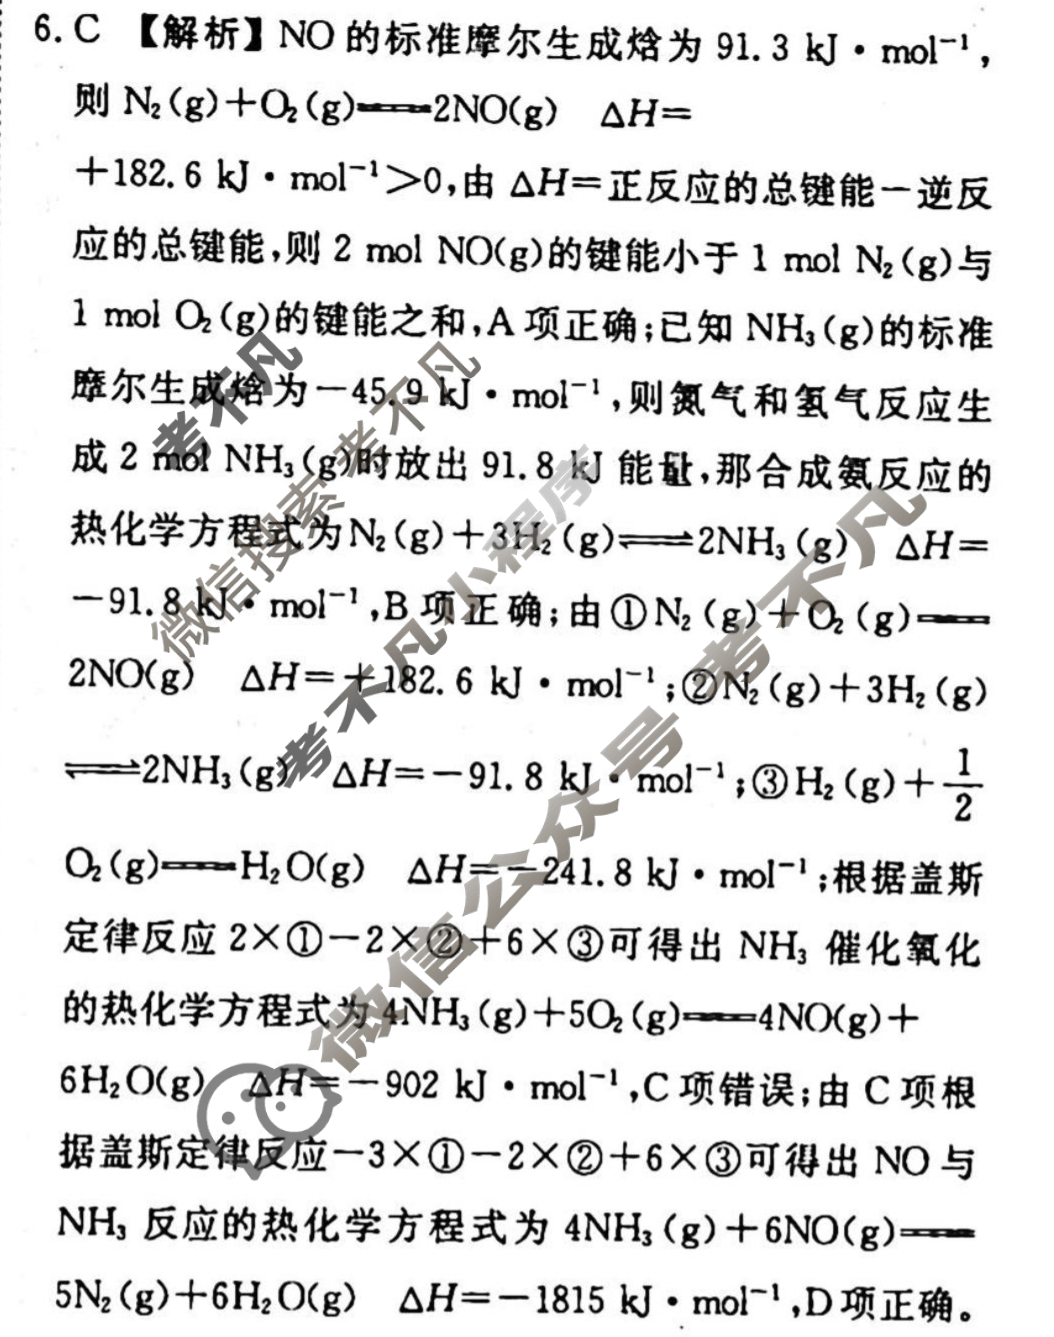 6. C 【解析】NO 的标准摩尔生成焓为 91.3 kJ·mol⁻¹，
则 N₂(g)+O₂(g)══2NO(g) △H=
+182.6 kJ·mol⁻¹>0,由 △H=正反应的总键能－逆反
应的总键能,则 2 mol NO(g)的键能小于 1 mol N₂(g)与
1 mol O₂(g)的键能之和,A 项正确;已知 NH₃(g)的标准
摩尔生成焓为－45.9 kJ·mol⁻¹,则氮气和氢气反应生
成 2 mol NH₃(g)时放出 91.8 kJ 能量,那合成氨反应的
热化学方程式为N₂(g)+3H₂(g)⇌2NH₃(g) △H=
－91.8 kJ·mol⁻¹,B 项正确;由①N₂(g)+O₂(g)══
2NO(g) △H=+182.6 kJ·mol⁻¹;②N₂(g)+3H₂(g)
⇌2NH₃(g) △H=－91.8 kJ·mol⁻¹;③H₂(g)+1/2
O₂(g)══H₂O(g) △H=－241.8 kJ·mol⁻¹;根据盖斯
定律反应 2×①－2×②+6×③可得出 NH₃ 催化氧化
的热化学方程式为 4NH₃(g)+5O₂(g)══4NO(g)+
6H₂O(g) △H=－902 kJ·mol⁻¹,C 项错误;由 C 项根
据盖斯定律反应－3×①－2×②+6×③可得出 NO 与
NH₃ 反应的热化学方程式为 4NH₃(g)+6NO(g)══
5N₂(g)+6H₂O(g) △H=－1815 kJ·mol⁻¹,D 项正确。
考不凡
微信搜索 考不凡
考不凡小程序
微信公众号 考不凡